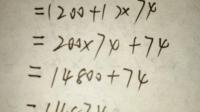 =(200+1)×74
= 200×74+74
= 14800+74